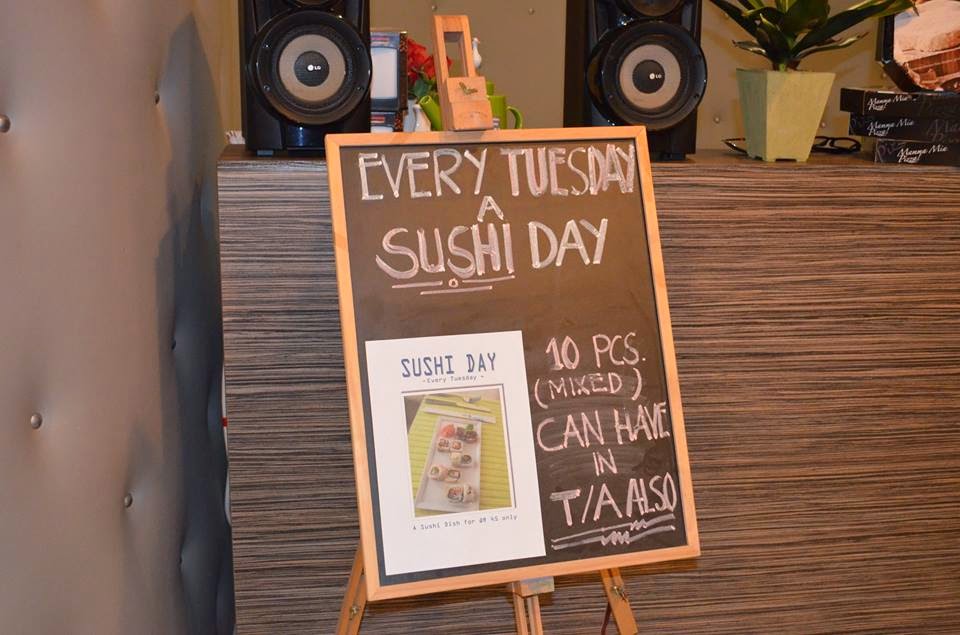 LG
LG
Mamma Mia
Pizza!
Mamma Mia
Pizza!
Mamma Mia
Pizza!
EVERY TUESDAY
A
SUSHI DAY
10 PCS.
(MIXED)
CAN HAVE
IN
T/A ALSO
SUSHI DAY
-Every Tuesday -
A Sushi Dish for only